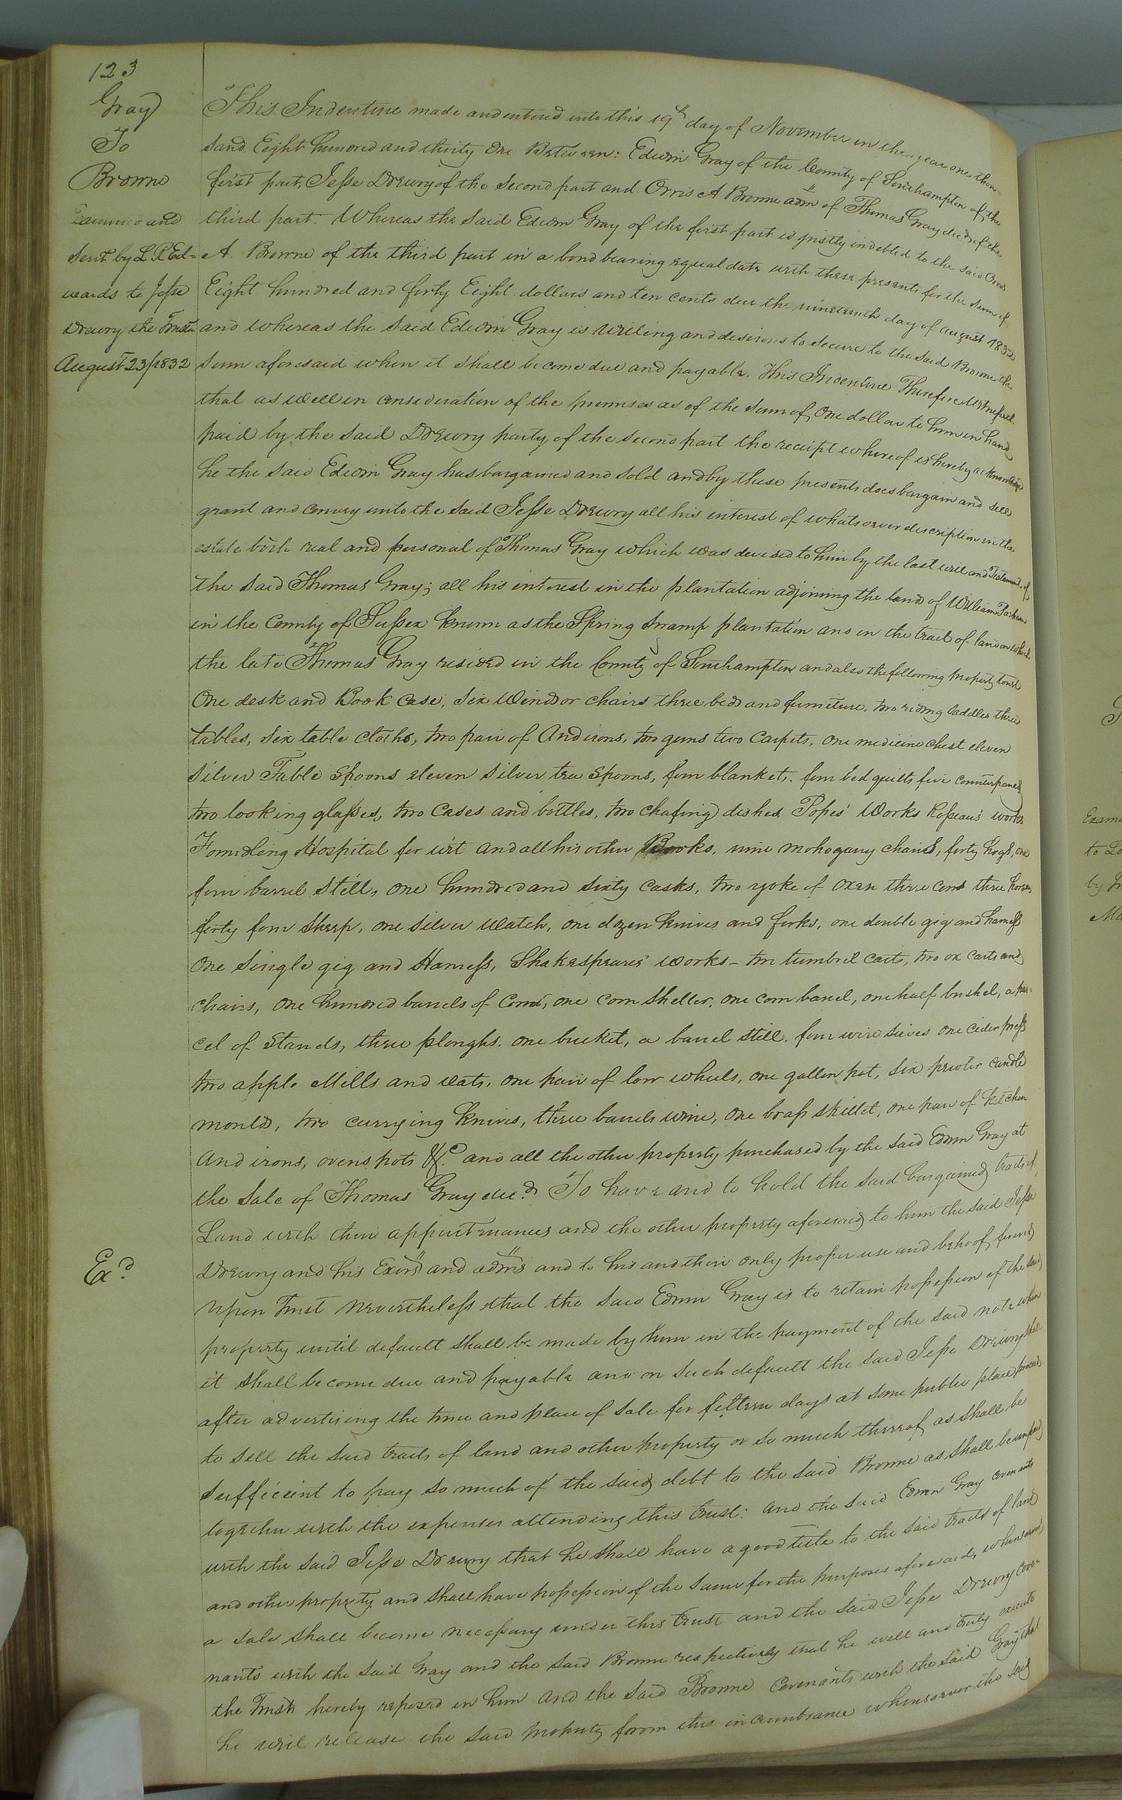 123
Gray
To
Browne
Examined and
sent by L. P. Ed-
wards to Jesse
Drewry the Trustee
August 23/1832
This Indenture made and entered into this 19th day of November in the year one thou
sand Eight hundred and thirty One Between: Edwin Gray of the County of Southampton of the
first part, Jesse Drewry of the Second part and Orris A Browne adm of Thomas Gray dec'd of the
third part. Whereas the Said Edwin Gray of the first part is justly indebted to the said Orris
A. Browne of the third part in a bond bearing equal date with these presents for the sum of
Eight hundred and forty Eight dollars and ten cents due the nineteenth day of August 1832
and whereas the said Edwin Gray is willing and desirous to secure to the Said Browne the
Sum aforesaid when it shall become due and payable. This Indenture Therefore Witnesseth
that as well in consideration of the premises as of the Sum of One dollar to him in hand
paid by the said Drewry party of the second part the receipt whereof is hereby acknowledged
he the said Edwin Gray has bargained and sold and by these presents does bargain and sell
grant and convey unto the said Jesse Drewry all his interest of whatsoever description in the
estate both real and personal of Thomas Gray which was devised to him by the last will and Testament of
the said Thomas Gray; all his interest in the plantation adjoining the land of William Parham
in the County of Sussex known as the Spring Swamp plantation and in the tract of land on which
the late Thomas Gray resided in the County of Southampton and also the following property to wit
One desk and Book Case, Six Windsor chairs three beds and furniture, two riding saddles three
tables, Six table cloths, two pair of Andirons, two guns two Carpets, One medicine chest eleven
Silver Table Spoons eleven Silver tea Spoons, four blankets, four bed quilts five counterpanes
two looking glasses, two Cases and bottles, two chafing dishes, Popes' Works Rosseau's works
Foundling Hospital for wit and all his other Books, nine mohogany chairs, forty hogs, one
four barrel Still, one hundred and sixty casks, two yoke of oxen three cows three horses
forty four Sheep, one silver Watch, one dozen knives and forks, one double gig and harness
One Single gig and Harness, Shakespeares' works – two tumbril carts, two ox carts and
chains, one hundred barrels of Corn, one corn Sheller, one corn barrel, one half bushel, a par-
cel of Stands, three ploughs, one bucket, a barrel still, four wire Sives one Cider press
two apple Mills and vats, one pair of low wheels, one gallon pot, six pewter candle
moulds, two currying knives, three barrels wine, One brass skillet, one pair of kitchen
And irons, ovens pots &c. and all the other property purchased by the said Edwin Gray at
the Sale of Thomas Gray dec'd To have and to hold the said bargained tracts of
Land with their appurtenances and the other property aforesaid to him the said Jesse
Drewry and his Exors and adm's and to his and their only proper use and behoof forever
Ex'd
Upon Trust nevertheless that the Said Edwin Gray is to retain possession of the said
property until default shall be made by him in the payment of the said note when
it shall become due and payable and on such default the said Jesse Drewry shall
after advertising the time and place of sale for fifteen days at some public place proceed
to sell the said tracts of land and other property or so much thereof as shall be
sufficient to pay so much of the said debt to the said Browne as shall be unpaid
together with the expenses attending this trust: and the said Edwin Gray covenants
with the said Jesse Drewry that he shall have a good title to the said tracts of land
and other property and shall have possession of the same for the purposes aforesaid, whensoever
a sale shall become necessary under this trust and the said Jesse Drewry cove-
nants with the said Gray and the said Browne respectively that he will and truly execute
the Trust hereby reposed in him And the said Browne Covenants with the said Gray that
he will release the said property from this incumbrance whensoever the said